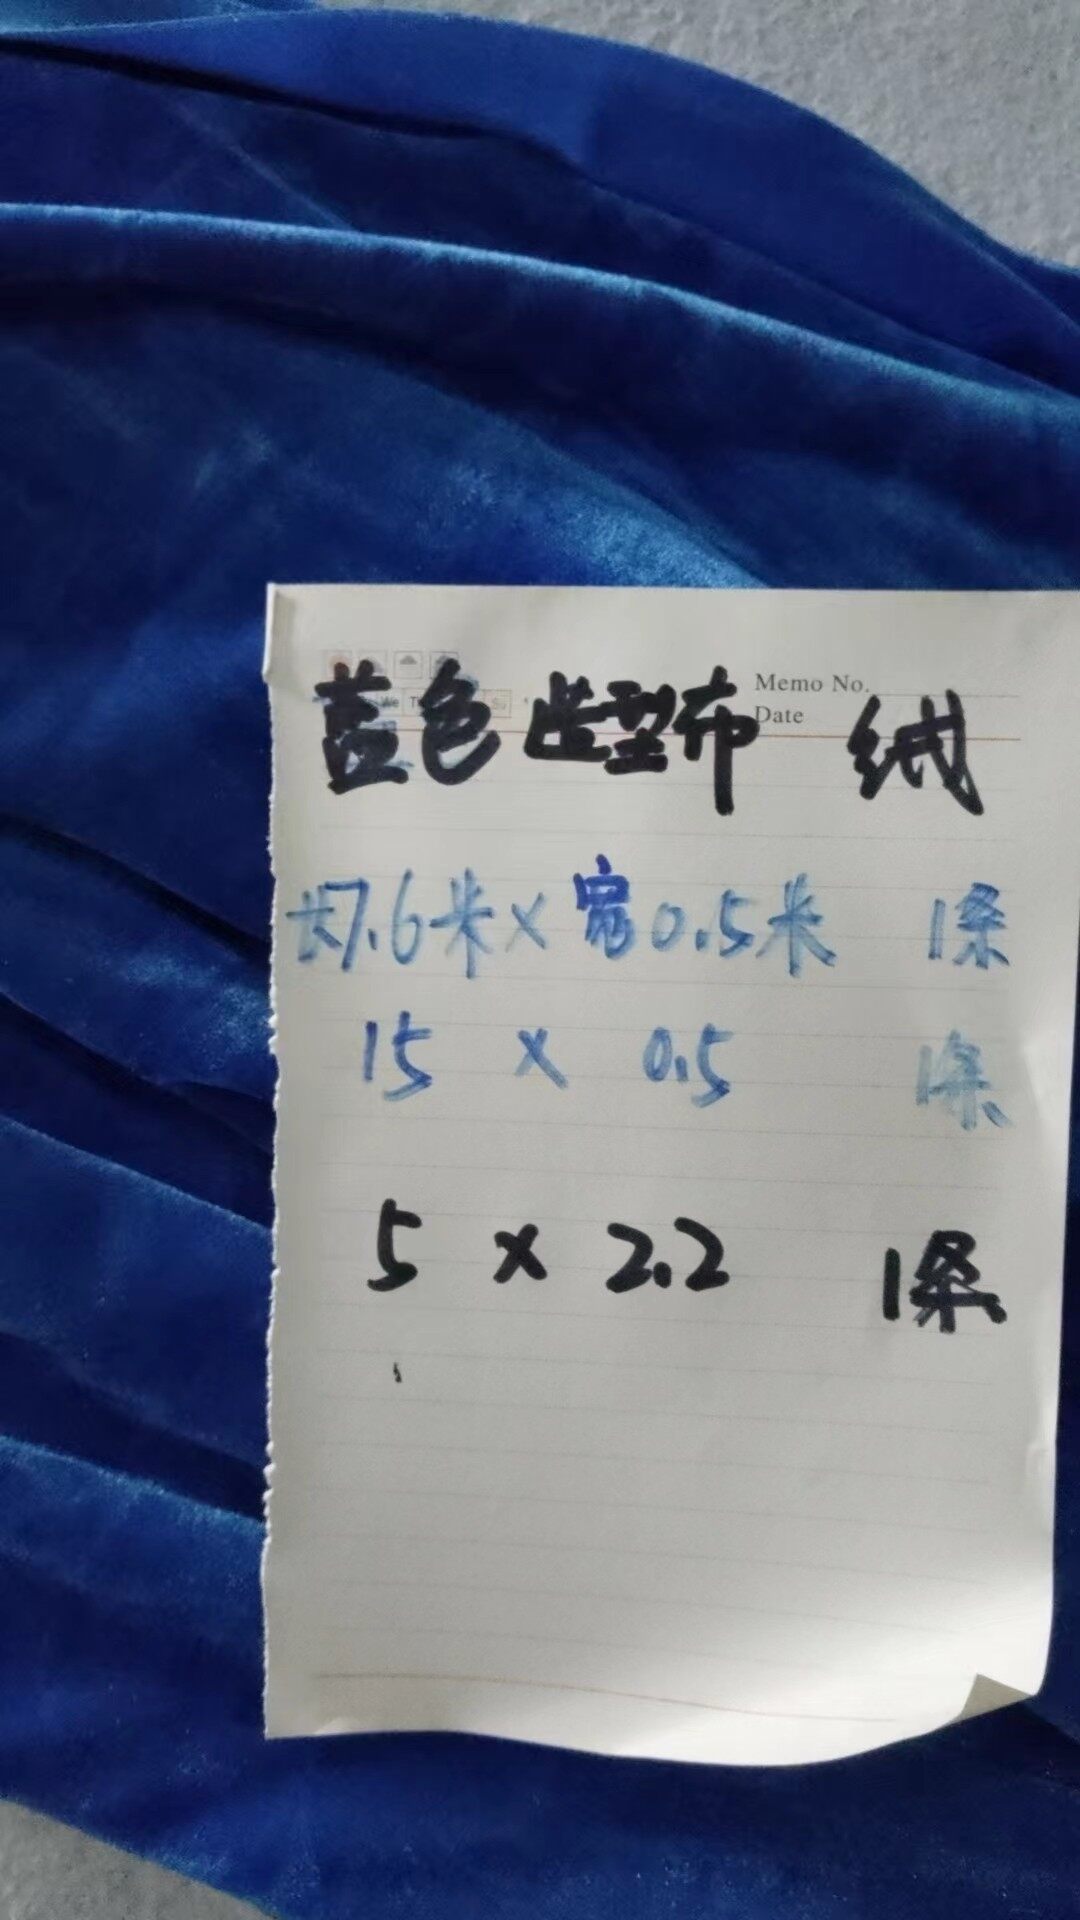 Memo No.
Date
蓝色造型布 绒
长7.6米×宽0.5米 1条
15 × 0.5 1条
5 × 2.2 1条